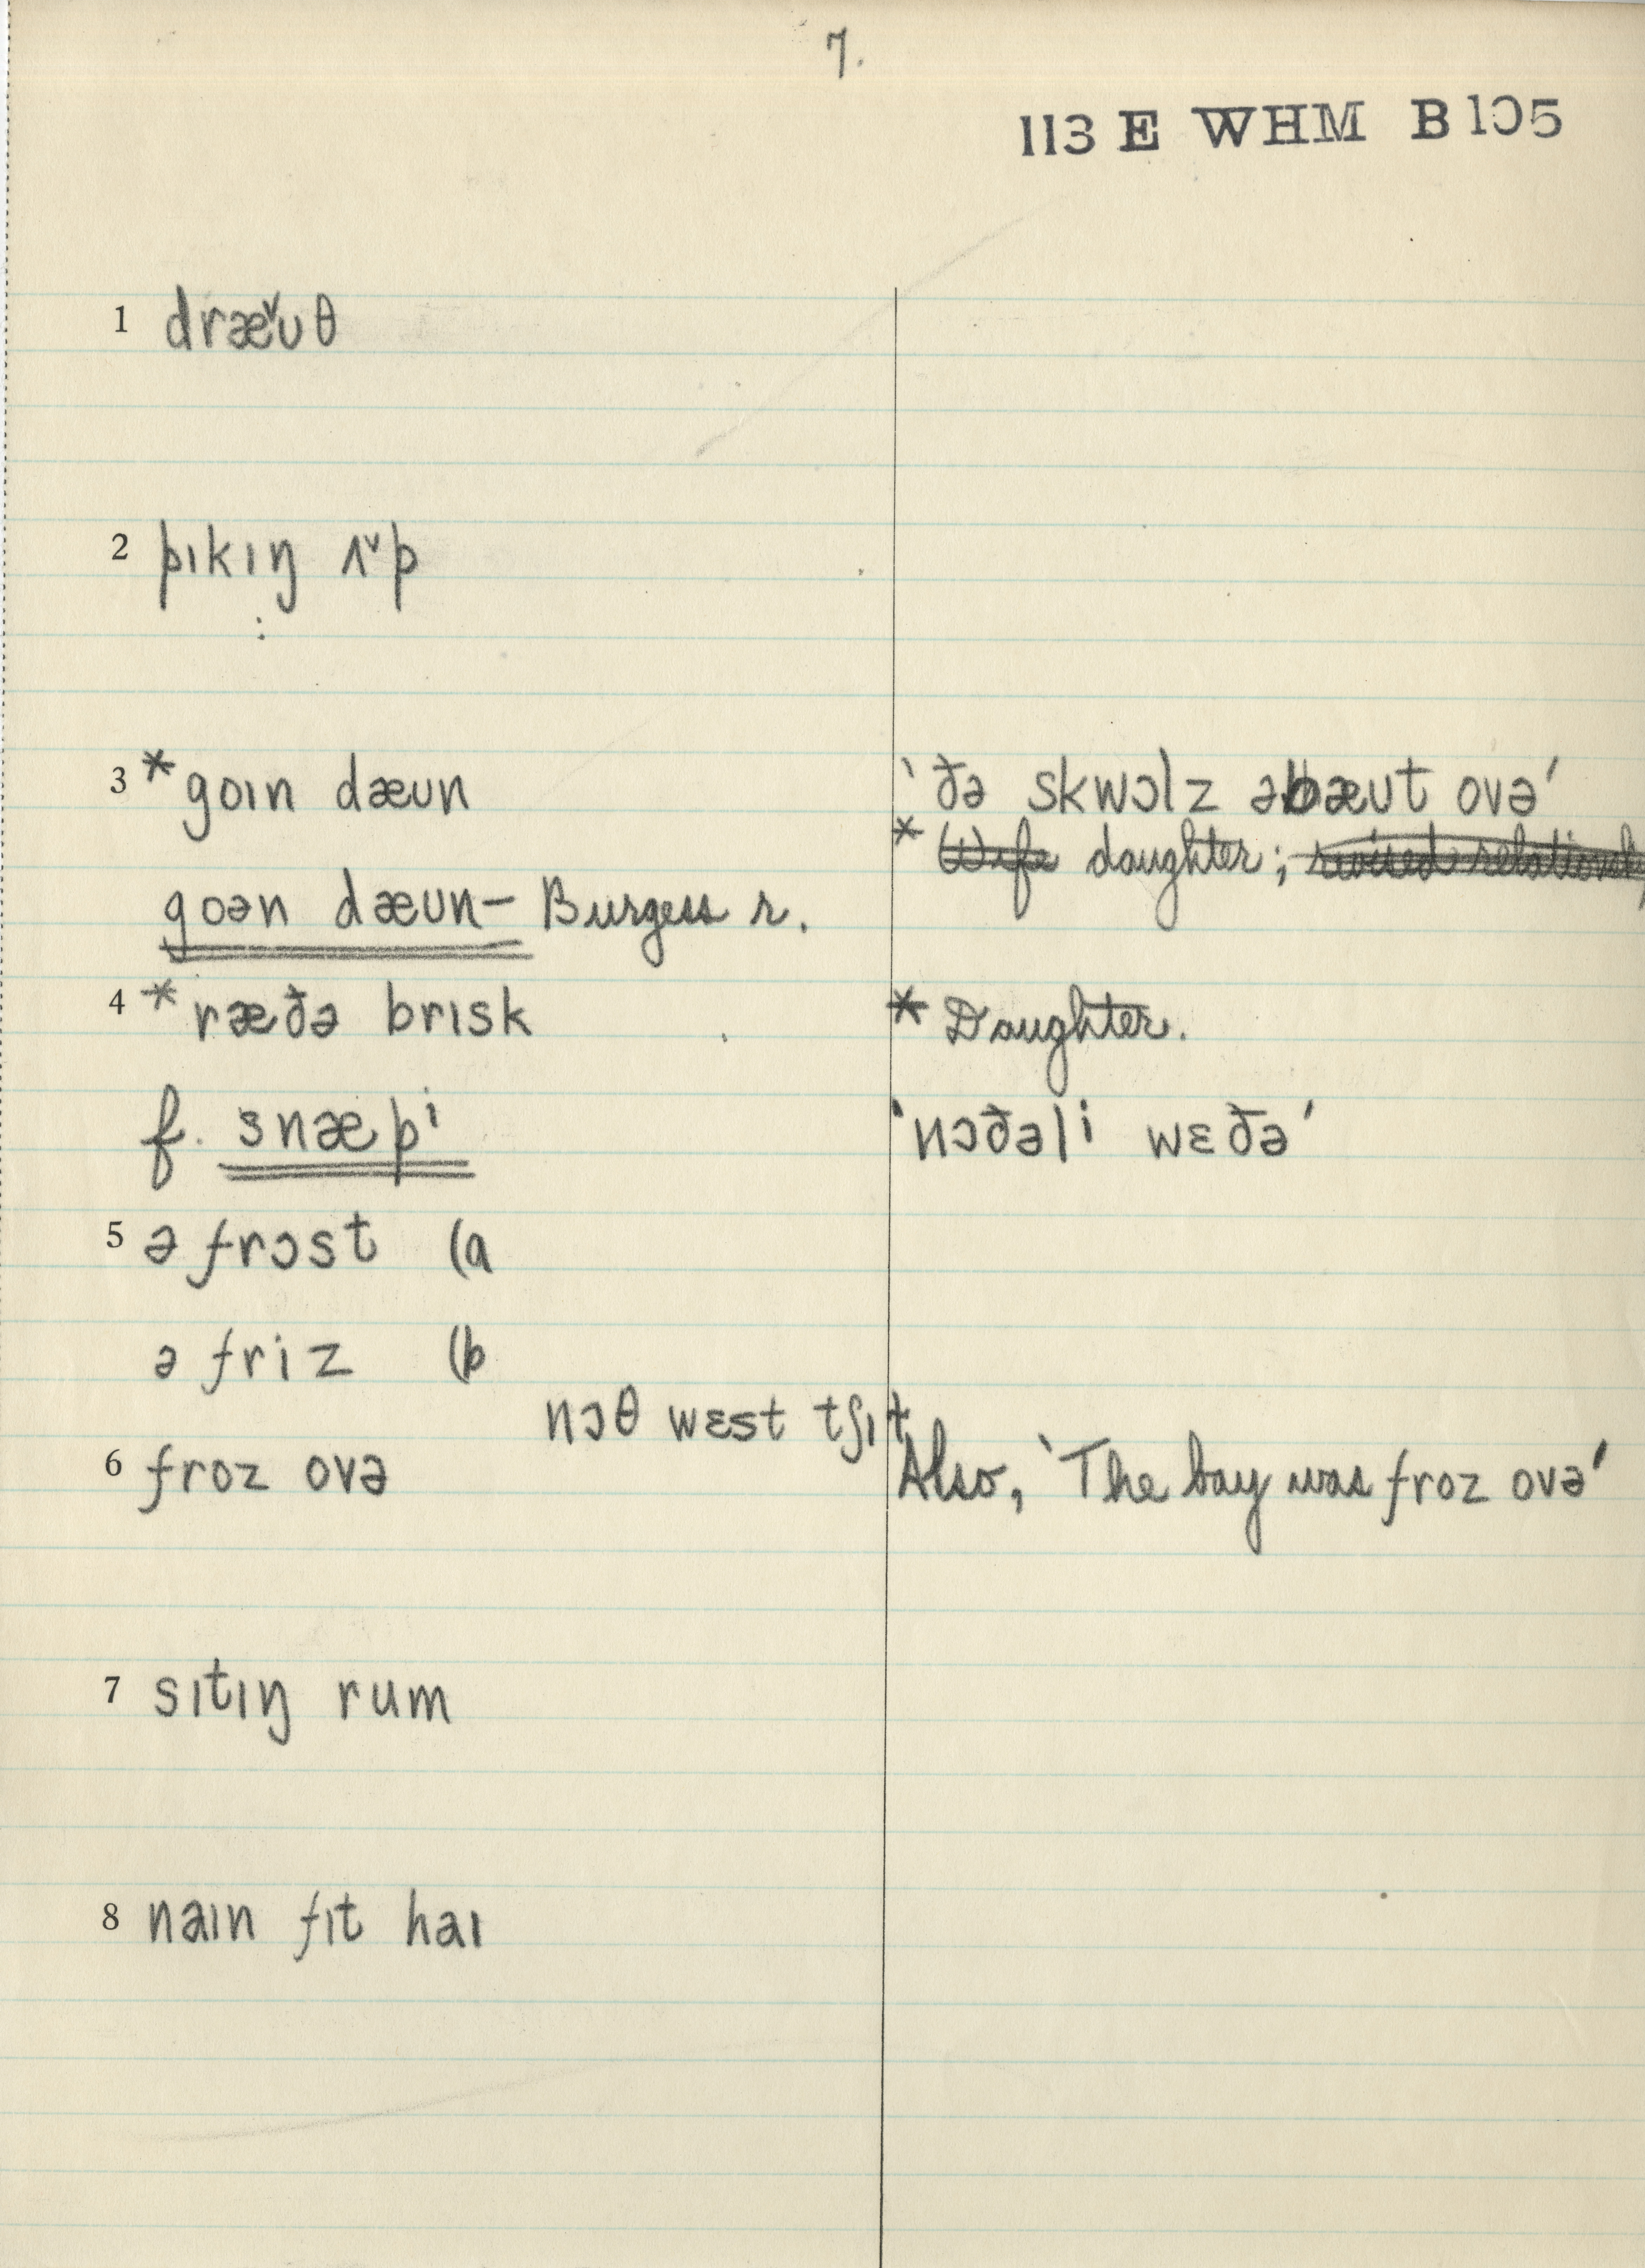 7.
113 E WHM B105
1 dræ˅ʊθ
2 pɪkɪŋ ʌ˅p
:
3 *goɪn dæʊn
‵ðə skwɔlz əbæʊt ovə′
* Wife daughter; revised relationsh
goən dæʊn— Burgess r.
4 *ræðə brɪsk
* Daughter.
f. snæpⁱ
‵nɔðəlⁱ wɛðə′
5 ə frɔst (a
ə friz (b
nɔθ wɛst tʃɪt
6 froz ovə
Also, ‵The bay was froz ovə′
7 sɪtɪŋ rum
8 naɪn fɪt haɪ